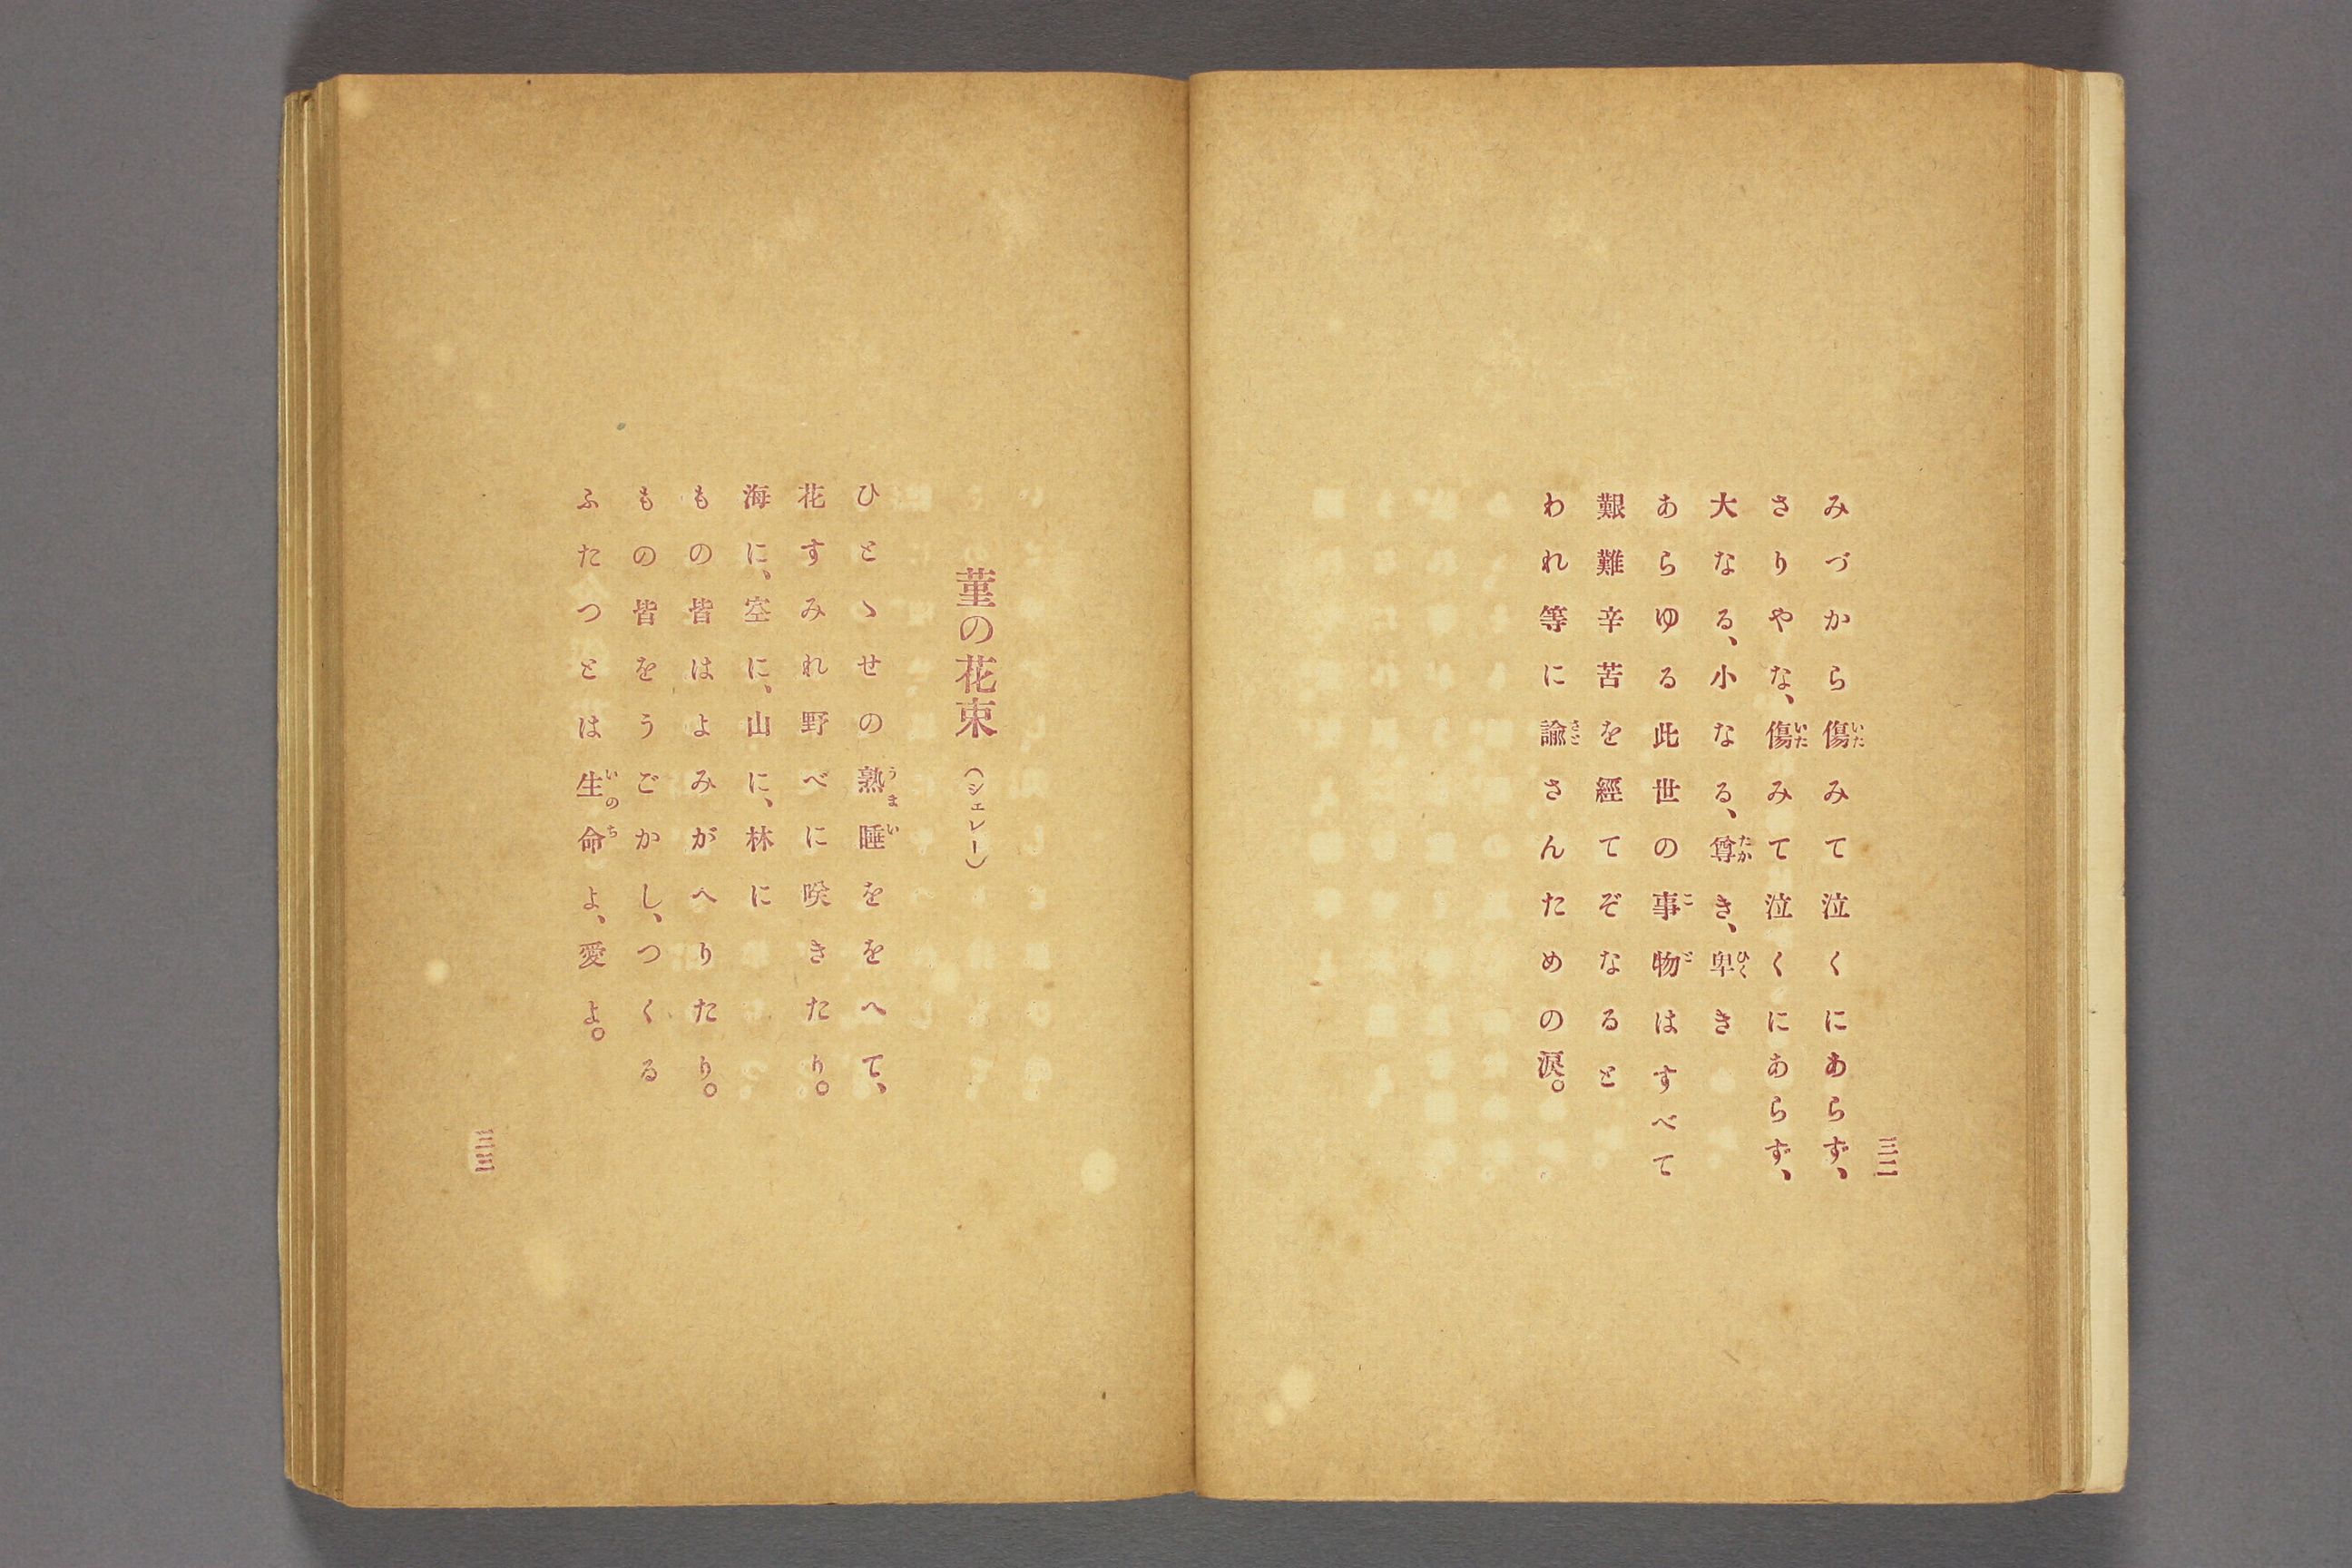 三二
みづから傷みて泣くにあらず、
さりやな、傷みて泣くにあらず、
大なる、小なる、尊き、卑き
あらゆる此世の事物はすべて
艱難辛苦を經てぞなると
われ等に諭さんための淚。
菫の花束 (シェレー)
ひとゝせの熟睡ををへて、
花すみれ野べに咲きたり。
海に、空に、山に、林に
もの皆はよみがへりたり。
もの皆をうごかし、つくる
ふたつとは生命よ、愛よ。
三三